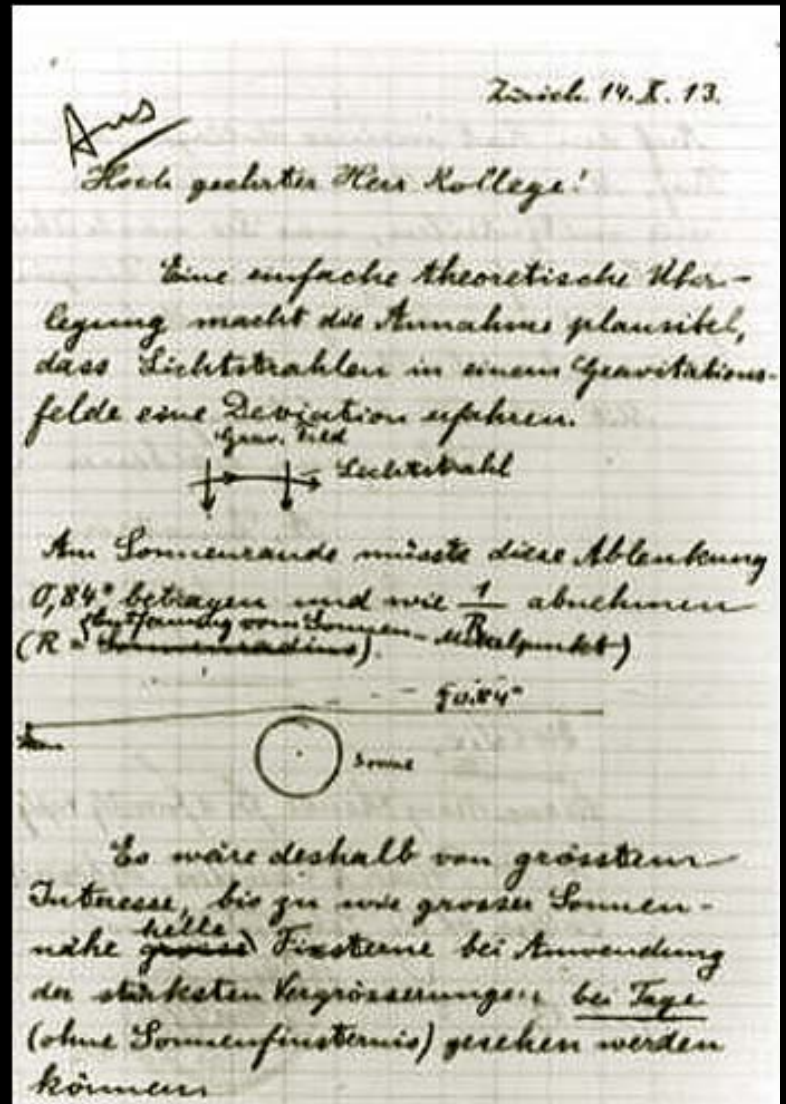 Zürich. 14. X. 13.
Aus
Hoch geehrter Herr Kollege!
Eine einfache theoretische Über-
legung macht die Annahme plausibel,
dass Lichtstrahlen in einem Gravitations-
felde eine Deviation erfahren.
Grav. Feld
Lichtstrahl
Am Sonnenrande müsste diese Ablenkung
0,84" betragen und wie 1/R abnehmen
Entfernung vom Sonnen-Mittelpunkt
(R = Sonnenradius).
0.84"
Stern
Sonne
Es wäre deshalb von grösstem
Interesse, bis zu wie grosser Sonnen-
helle
nähe grosse Fixsterne bei Anwendung
der stärksten Vergrösserungen bei Tage
(ohne Sonnenfinsternis) gesehen werden
können.